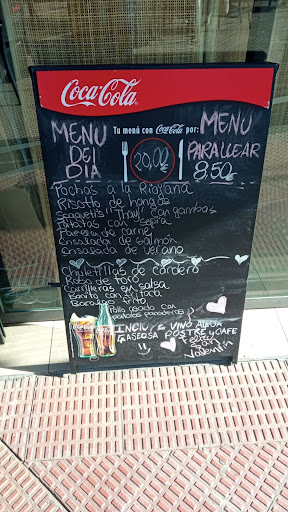 Coca-Cola
Tu menú con Coca-Cola por:
MENU DEL DIA
20,00€
MENU PARA LLEVAR
8,50€
Pochas a la Riojana
Risotto de hongos
Spaguetis "Thay" con gambas
Patatas con sepia
Parrilla de carne
Ensalada de salmón
Ensalada de verano
Chuletillas de cordero
Rabo de toro
Carrilleras en salsa
Bonito con
Bacalao frito
Pollo asado con
patatas panaderas
INCLUYE VINO AGUA
GASEOSA POSTRE Y CAFE
Feliz San Valentín